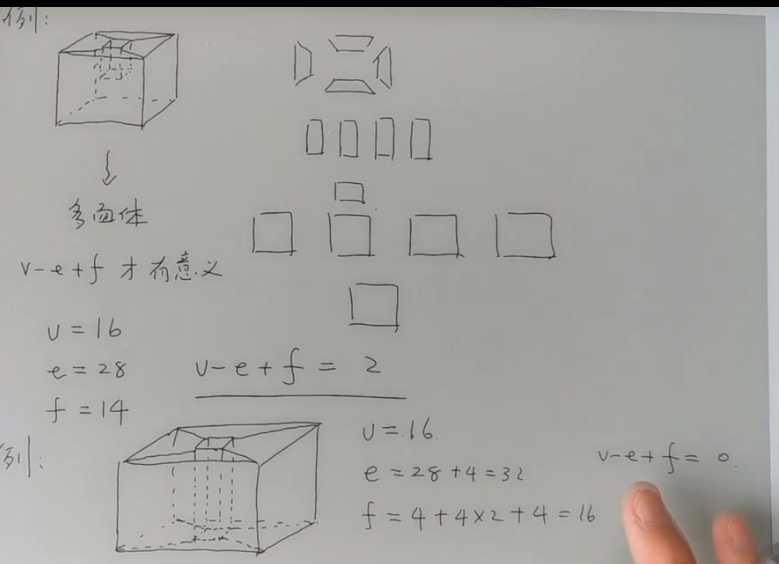 例:
多面体
v-e+f 才有意义
v=16
e=28
f=14
v-e+f = 2
例:
v=.16.
e=28+4=32
f=4+4×2+4=16
v-e+f= 0.